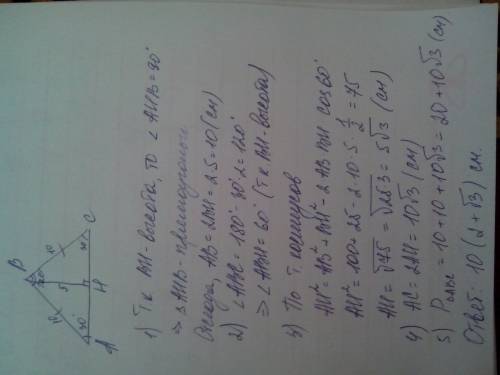 B
10
10
60°
5
30°
30°
A
H
C
1) Т.к BH-высота, то ∠AHB=90°
⇒ ΔAHB-прямоугольный
Отсюда, AB=2BH=2·5=10(см)
2) ∠ABC=180°-30°·2=120°
⇒ ∠ABH=60° (Т.к BH-высота)
3) По т. косинусов
AH²=AB²+BH²-2AB·BH·cos60°
AH²=100+25-2·10·5·½=75
AH=√75=√25·3=5√3 (см)
4) AC=2AH=10√3(см)
5) P△ABC=10+10+10√3=20+10√3(см)
Ответ: 10(2+√3) см.